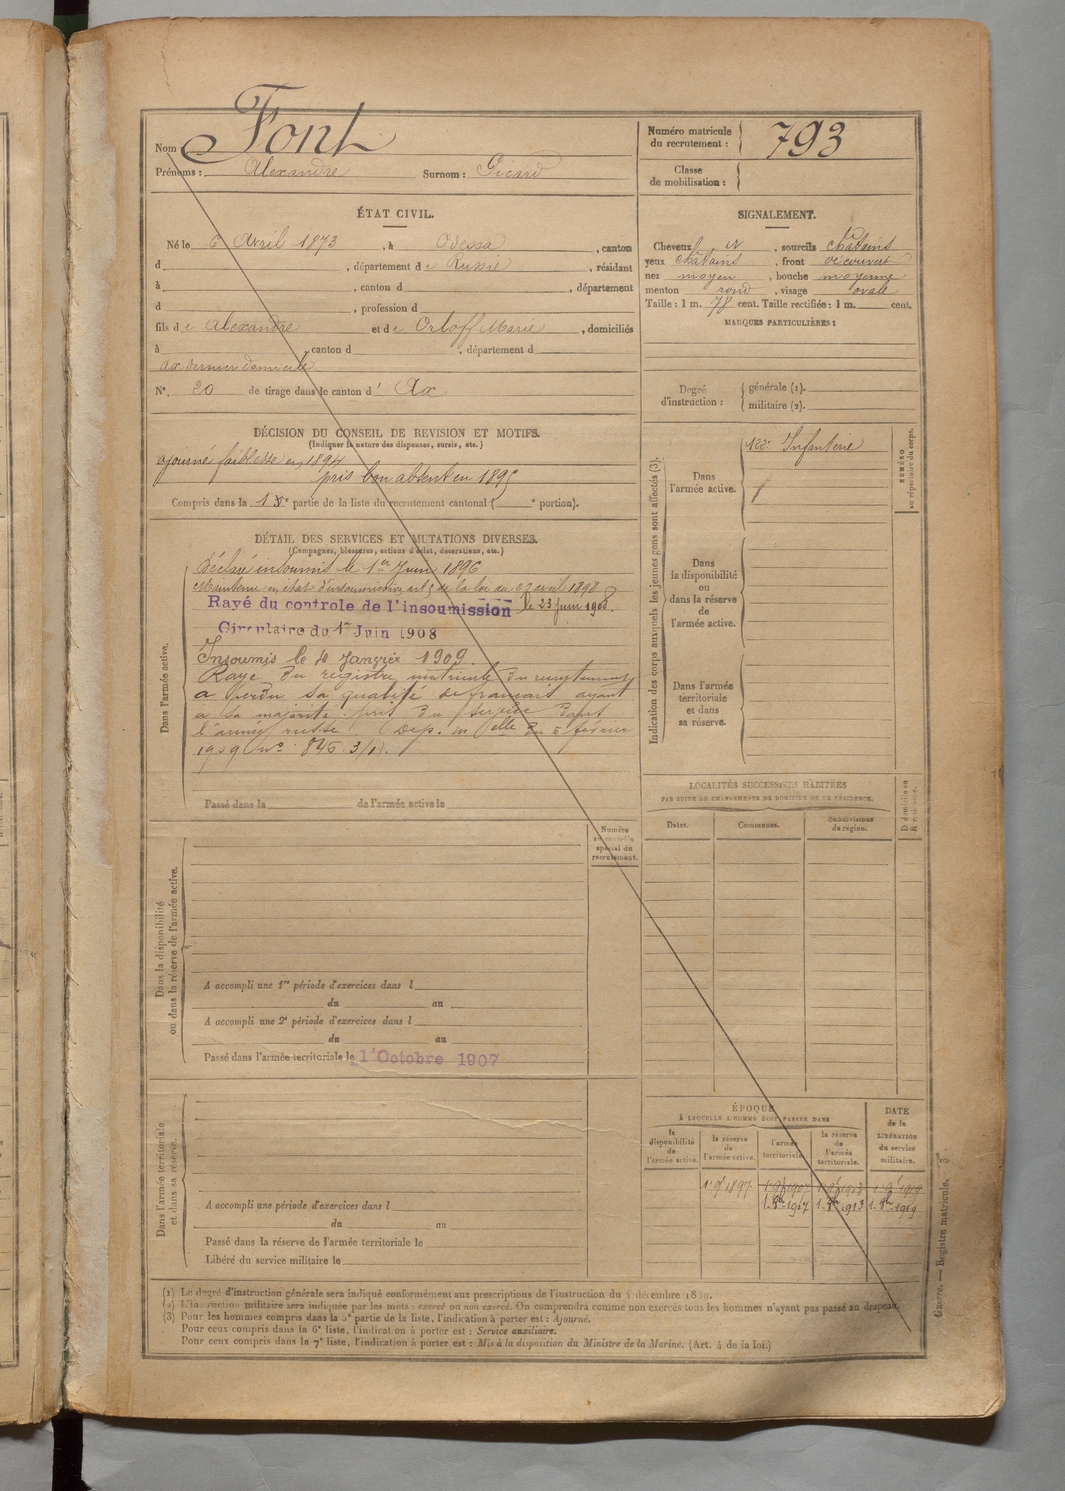 Nom Font
Prénoms : Alexandre Surnom : Picard
Numéro matricule du recrutement : 793
Classe de mobilisation :
ÉTAT CIVIL.
Né le 6 Avril 1873, à Odessa, canton
d , département de Russie, résidant
à , canton d , département
d , profession d
fils de Alexandre et de Orloff Marie, domiciliés
à , canton d , département d
Ax dernier domicile
N°. 20 de tirage dans le canton d' Ax
SIGNALEMENT.
Cheveux et N, sourcils chatains
yeux chatains, front découvert
nez moyen, bouche moyenne
menton rond, visage ovale
Taille : 1 m. 78 cent. Taille rectifiée : 1 m. cent.
MARQUES PARTICULIÈRES :
Degré d'instruction : générale (1).
militaire (2).
DÉCISION DU CONSEIL DE REVISION ET MOTIFS.
(Indiquer la nature des dispenses, sursis, etc.)
ajourné faiblesse en 1894
pris bon absent en 1895
Compris dans la 1e partie de la liste du recrutement cantonal ( e portion).
DÉTAIL DES SERVICES ET MUTATIONS DIVERSES.
(Campagnes, blessures, actions d'éclat, décorations, etc.)
Dans l'armée active.
Déclaré insoumis le 1er Juin 1896
Maintenu en état d'insoumission, art 5 de la loi du 27 avril 1898
Rayé du controle de l'insoumission le 23 Juin 1908.
Circulaire du 1er Juin 1908
Insoumis le Janvier 1909.
Rayé du registre matricule du recrutement
a perdu sa qualité de français ayant
à sa majorité pris du service dans
l'armée russe (Dép. Mелle du 5 février
1909 no 846.3/1).
Passé dans la de l'armée active le
Numéro au contrôle spécial du recrutement.
Dans la disponibilité ou dans la réserve de l'armée active.
A accompli une 1re période d'exercices dans l
du au
A accompli une 2e période d'exercices dans l
du au
Passé dans l'armée territoriale le 1er Octobre 1907
Dans l'armée territoriale et dans sa réserve.
A accompli une période d'exercices dans l
du au
Passé dans la réserve de l'armée territoriale le
Libéré du service militaire le
Indication des corps auxquels les jeunes gens sont affectés (3).
NUMÉRO au répertoire du corps.
Dans l'armée active.
122e Infanterie
Dans la disponibilité ou dans la réserve de l'armée active.
Dans l'armée territoriale et dans sa réserve.
LOCALITÉS SUCCESSIVES HABITÉES
PAR SUITE DE CHANGEMENTS DE DOMICILE OU DE RÉSIDENCE.
Dates. Communes. Subdivisions de région.
ÉPOQUE
À LAQUELLE L'HOMME DOIT PASSER DANS
DATE de la LIBÉRATION du service militaire.
la disponibilité de l'armée active.
la réserve de l'armée active.
l'armée territoriale.
la réserve de l'armée territoriale.
1 9e 1897 1 9e 1907 1 9e 1913 1 9e 1919
Guerre. — Registre matricule.
(1) Le degré d'instruction générale sera indiqué conformément aux prescriptions de l'instruction du 4 décembre 1889.
(2) L'instruction militaire sera indiquée par les mots : exercé ou non exercé. On comprendra comme non exercés tous les hommes n'ayant pas passé au drapeau.
(3) Pour les hommes compris dans la 5e partie de la liste, l'indication à porter est : Ajourné.
Pour ceux compris dans la 6e liste, l'indication à porter est : Service auxiliaire.
Pour ceux compris dans la 7e liste, l'indication à porter est : Mis à la disposition du Ministre de la Marine. (Art. 4 de la loi.)